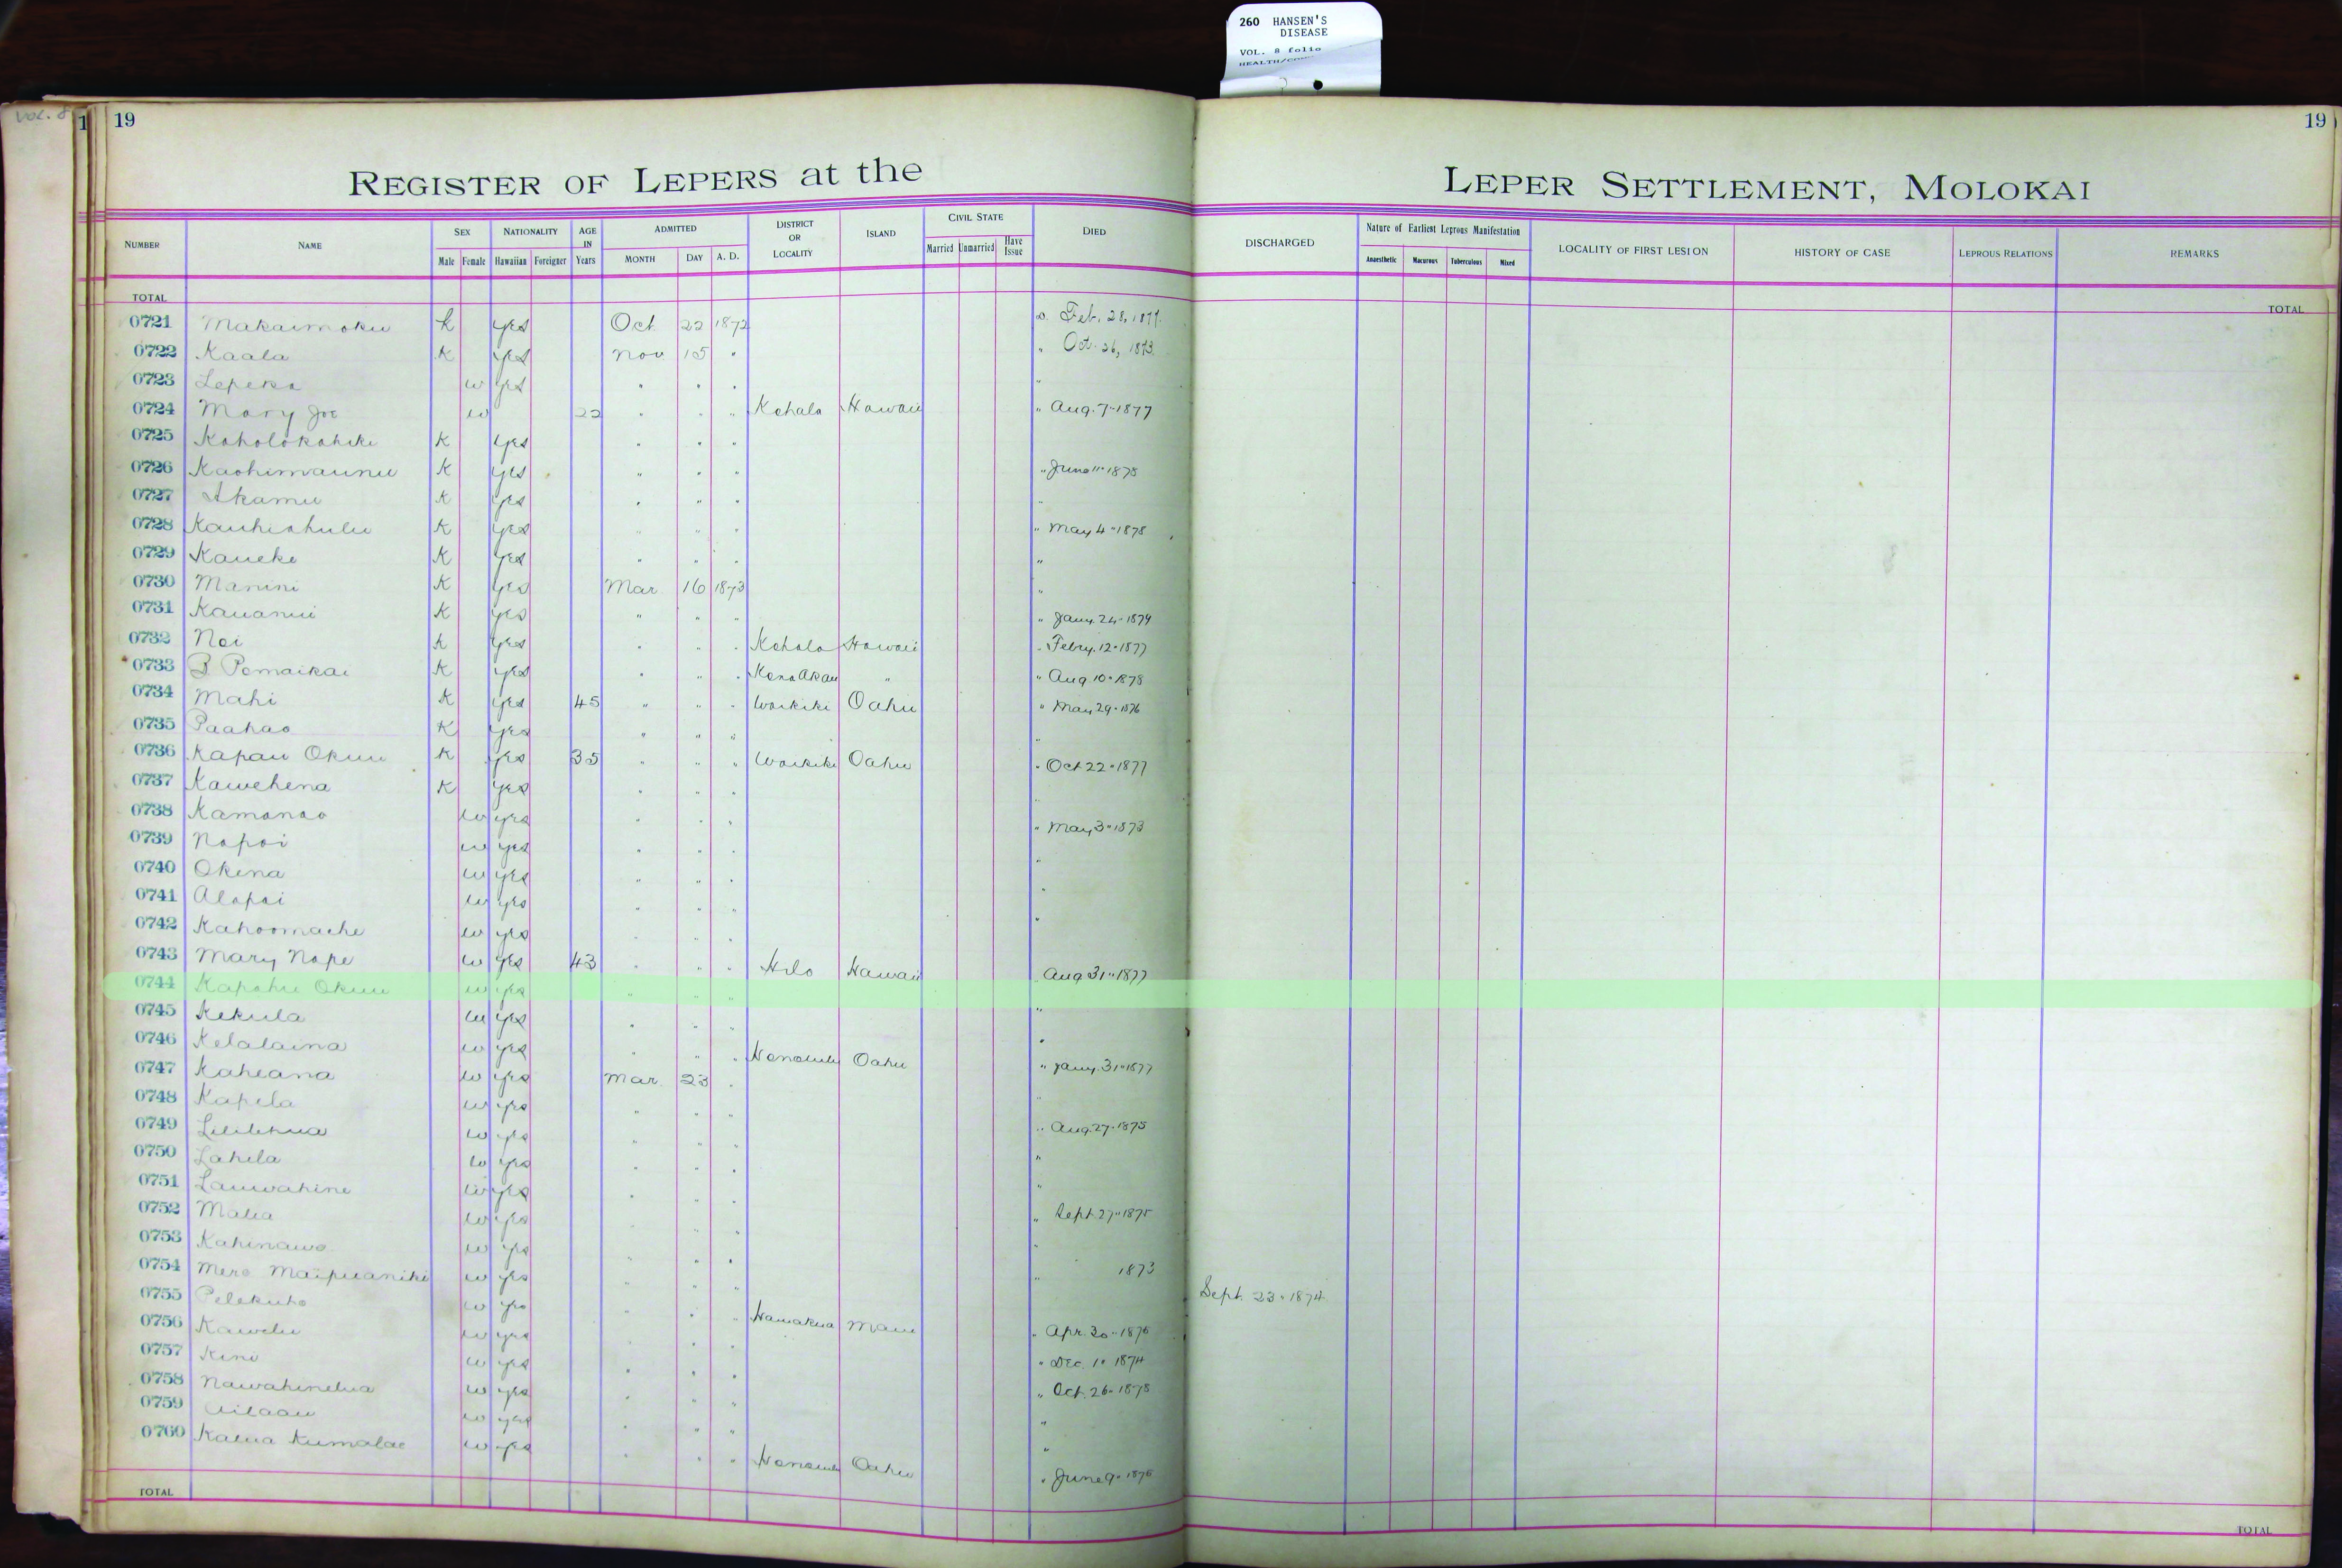 260 HANSEN'S
DISEASE
VOL. 8 folio
Vol. 8
1 19 19
REGISTER OF LEPERS at the LEPER SETTLEMENT, MOLOKAI
NUMBER NAME SEX NATIONALITY AGE IN Years ADMITTED DISTRICT OR LOCALITY ISLAND CIVIL STATE DIED DISCHARGED Nature of Earliest Leprous Manifestation LOCALITY OF FIRST LESION HISTORY OF CASE LEPROUS RELATIONS REMARKS
Male Female Hawaiian Foreigner MONTH DAY A. D. Married Unmarried Have Issue Anaesthetic Macurous Tuberculous Mixed
TOTAL TOTAL
0721 Makaimoku K yes Oct 22 1872 D. Feb. 28, 1877.
0722 Kaala K yes Nov 15 " " Oct. 26, 1873.
0723 Lepeka w yes " " " "
0724 Mary Joe w 22 " " " Kohala Hawaii " Aug. 7" 1877
0725 Koholokahiki K yes " " "
0726 Kaohimaunu K yes " " " " June 11" 1878
0727 Akamu K yes " " " "
0728 Kauhiahulu K yes " " " " May 4" 1878
0729 Kaueke K yes " " " "
0730 Manini K yes Mar 16 1873 "
0731 Kauanui K yes " " " " Jany. 24" 1879
0732 Noi K yes " " " Kohala Hawaii " Febry. 12" 1877
0733 B Pomaikai K yes " " " Kona Akau " " Aug 10" 1878
0734 Mahi K yes 45 " " " Waikiki Oahu " May 29" 1876
0735 Paahao K yes " " " "
0736 Kapau Okuu K yes 35 " " " Waikiki Oahu " Oct 22" 1877
0737 Kawehena K yes " " " "
0738 Kamanao w yes " " " " May 3" 1873
0739 Napoi w yes " " " "
0740 Okina w yes " " " "
0741 Alapai w yes " " " "
0742 Kahoomache w yes " " "
0743 Mary Nape w yes 43 " " " Hilo Hawaii Aug 31" 1877
0744 Kapahu Okuu w yes " " " "
0745 Kekula w yes " " " "
0746 Kelalaina w yes " " " Honolulu Oahu " Jany. 31" 1877
0747 Kaheana w yes Mar. 23 " "
0748 Kapela w yes " " " " Aug. 27" 1875
0749 Lililehua w yes " " " "
0750 Lahela w yes " " " "
0751 Lauwahine w yes " " " " Sept. 27" 1875
0752 Malia w yes " " " "
0753 Kahinawe w yes " " " " 1873
0754 Mere Maipuaniki w yes " " " Sept. 23" 1874
0755 Pelekuho w yes " " " Hamakua Maui " Apr. 30" 1876
0756 Kawelu w yes " " " Dec. 1" 1874
0757 Kini w yes " " " " Oct. 26" 1878
0758 Nawahinelua w yes " " " "
0759 Ailaau w yes " " " "
0760 Kalua Kumalae w yes " " " Honolulu Oahu " June 9" 1876
TOTAL TOTAL